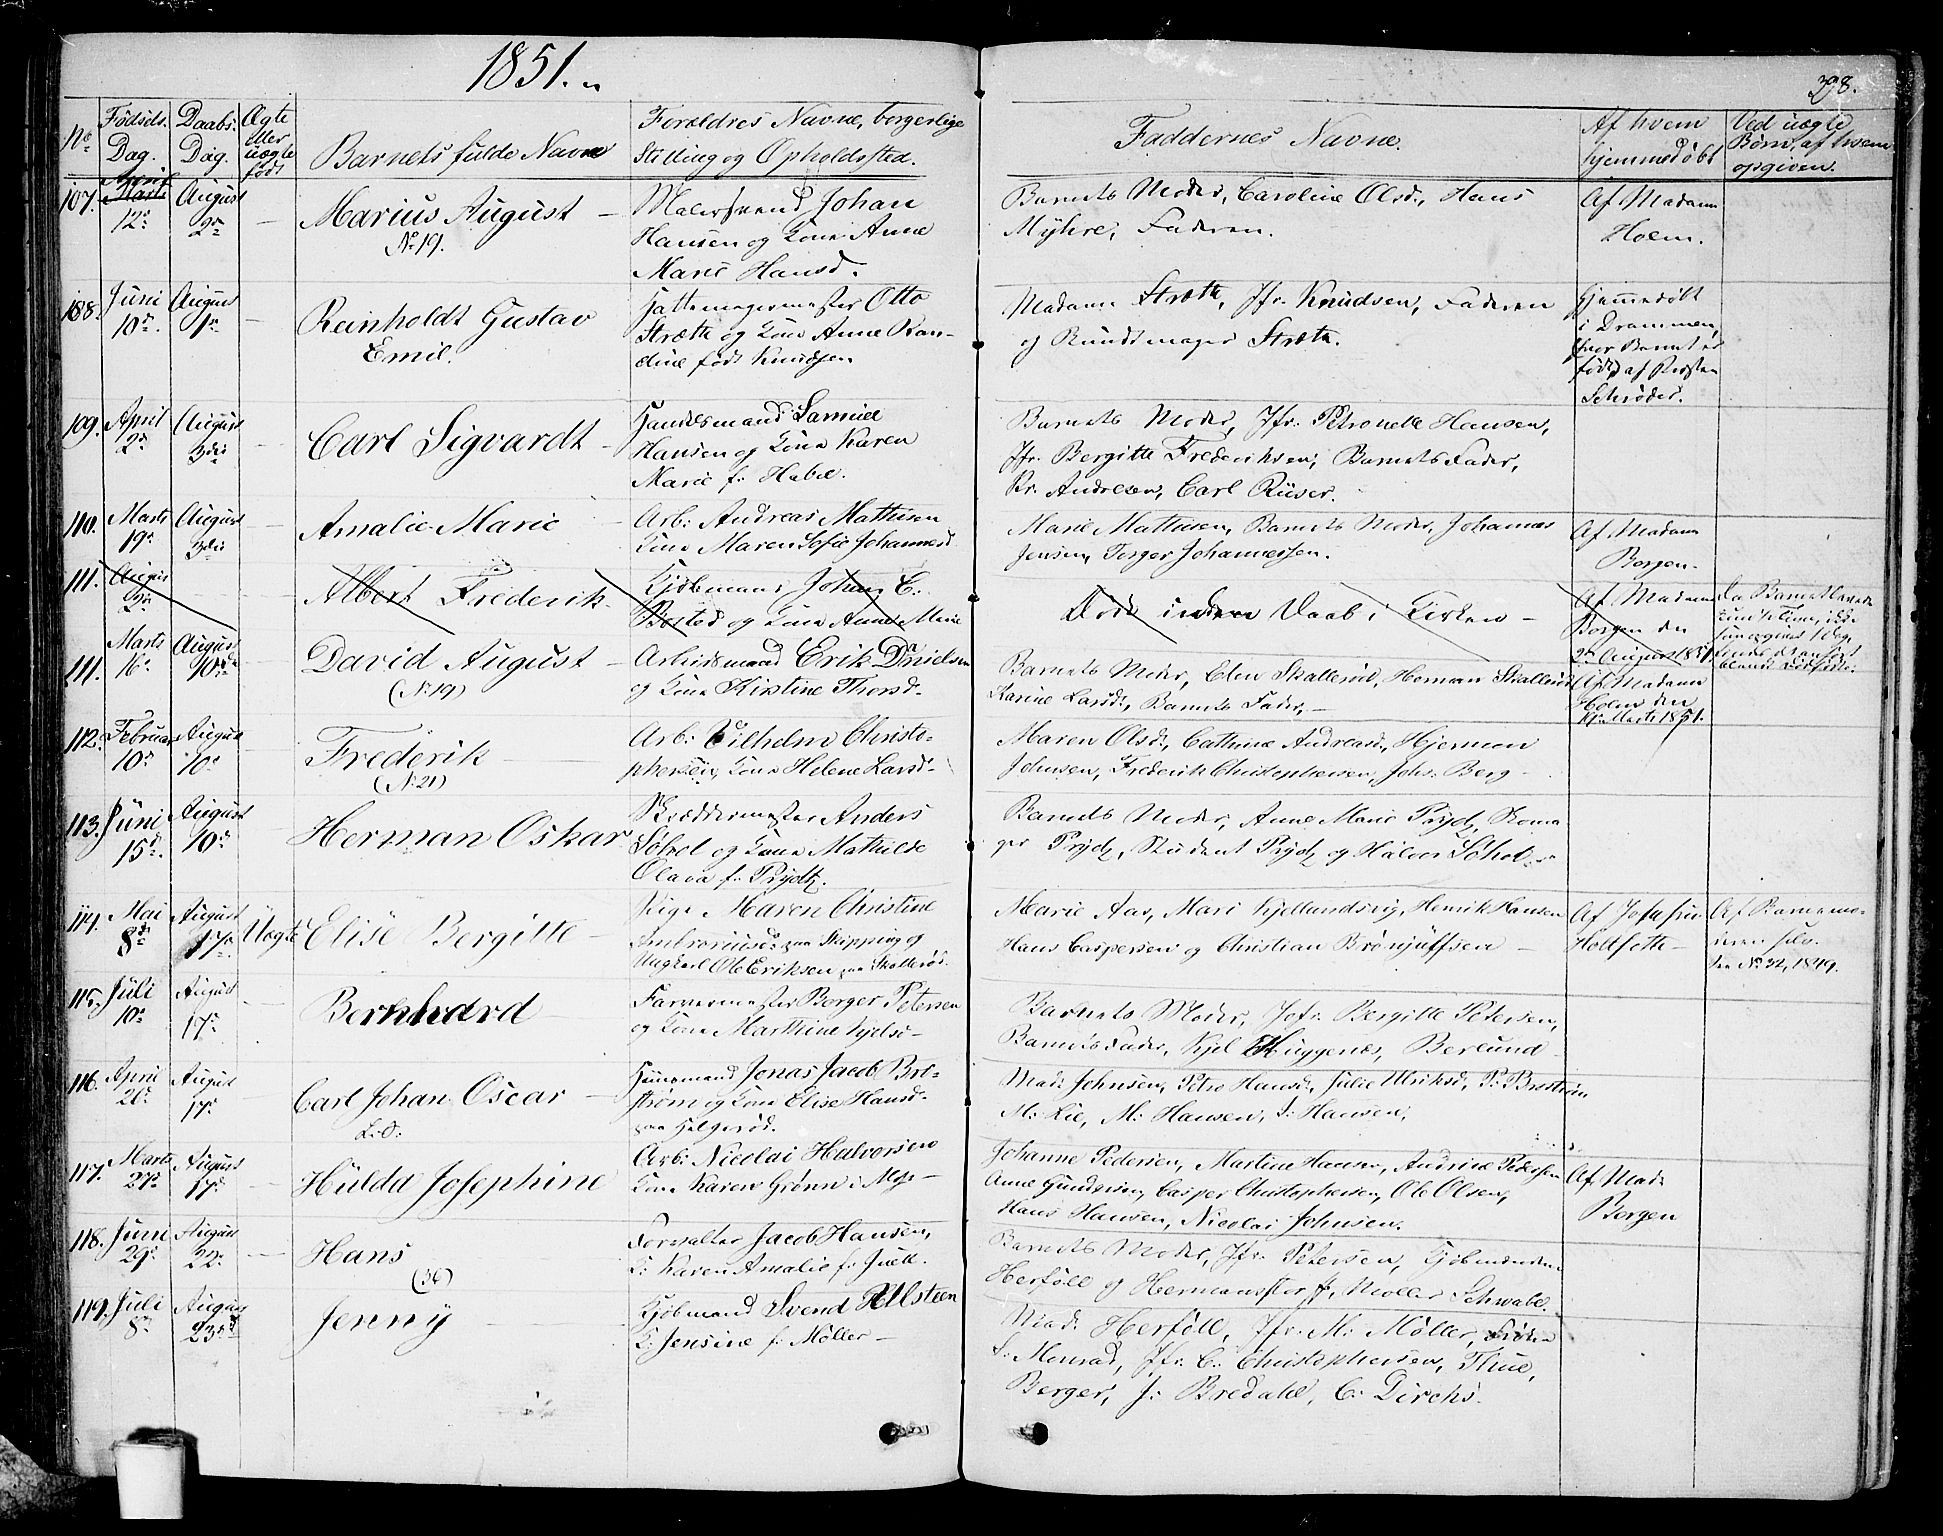 1851.
398.
No
Fødsels-
Dag.
Daabs-
Dag.
Ægte
eller
uægte
født
Barnets fulde Navne
Forældres Navne, borgerlige
Stilling og Opholdssted.
Faddernes Navne.
Af hvem
hjemmedøbt
Ved uægte
Børn, af hvem
opgiven.
107. April 12. August 2. Marius August
No 19.
Malersvend Johan
Hansen og Kone Anne
Marie Hansd.
Barnets Moder, Caroline Olsd., Hans
Myhre, Faderen.
Af Madam
Holm.
108. Juni 10. August 1. Reinholdt Gustav
Emil.
Hattemagermester Otto
Stræth og Kone Anne
født Knudsen
Madam Stræth, Jfr. Knudsen, Faderen
og Bundtmager Stræth.
Hjemmedøbt
i Drammen,
hvor Barnet er
født, af
Schrøder.
109. April 2. August 3die Carl Sigvardt
Handelsmand Samuel
Hansen og Kone Karen
Marie f. Habel.
Barnets Moder, Jfr. Petronelle Hansen,
Jfr. Bergitte Frederiksen, Barnets Fader,
Kr. Andresen, Carl Rüser.
110. Marts 19. August 3die Amalie Marie
Arb: Andreas Mathisen
Kone Maren Sofie Johannesd.
Marie Mathisen, Barnets Moder, Johannes
Jensen, Torger Johannessen.
Af Madam
Borgen.
111. August 2. Albert Frederik
Kjøbmand Johan C.
og Kone Anne Marie
Døde inden Daab i Kirken
Af Madam
Borgen den
2. August 1851.
111. Marts 16. August 10. David August
(No 19)
Arbeidsmand Erik Danielsen
og Kone Kirstine Thorsd.
Barnets Moder, Elen Skallerud, Herman Skallerud
Karine Larsd., Barnets Fader.
Af Madam
Holm den
Marts 1851.
112. Februar 10. August 10. Frederik
(No 21)
Arb: Vilhelm Christo-
phersen, Kone Helene Larsd.
Maren Olsd., Cathrine Andreasd., Hjerman
Johnsen, Frederik Christophersen, Johs: Berg
113. Juni 15. August 10. Herman Oskar
Skræddermester Anders
Søhol og Kone Mathilde
Olava f. Prydtz.
Barnets Moder, Anne Marie Prydz,
Prydz, Student Prydz og Halvor Søhol
114. Mai 8. August 17. Uægte Elise Bergitte
Pige Maren Christine
Ambrosiusd. paa Skipping og
Ungkarl Ole Eriksen paa Skallerød.
Marie Aas, Mari Kjellandsvig, Henrik Hansen
Hans Caspersen og Christian Brønjulfsen
Af
Holtsette
Af Barnemo-
deren selv.
See No 32, 1849.
115. Juli 10. August 17. Bernhard
Farvermester Berger Petersen
og Kone Marthine Kjelsd.
Barnets Moder, Jfr. Bergitte Petersen,
Barnets Fader, Kjel Huggenæs, Berlund
116. April 21. August 17. Carl Johan Oscar
Huusmand Jonas Jacob Bre-
strøm og Kone Elise Hansd.
paa Helgerød.
Mad: Johnsen, Petro Hansd., Julie Ulriksd, P: Brestrøm
M: Lie, M: Hansen, S: Hansen,
117. Marts 27. August 17. Hulda Josephine
Arb: Nicolai Halvorsen
Kone Karen Grønn i Moss
Johanne Pedersen, Martine Hansen, Andrine Pedersen
Anne Gundersen, Casper Christophersen, Ole Olsen,
Hans Hansen, Nicolai Johnsen.
Af Mad:
Borgen
118. Juni 29. August 22. Hans
(36)
Forvalter Jacob Hansen,
K: Karen Amalie f. Juell.
Barnets Moder, Jfr. Petersen,
Herføll og Møller Schwabe.
119. Juli 8. August 23. Jenny
Kjøbmand Svend Ulsteen
K: Jensine f. Møller
Mad: Herføll, Jfr. M: Møller,
S: Monrad, Jfr. C: Christophersen, Thue,
Berger, J: Bredahl, C: Dirchs.